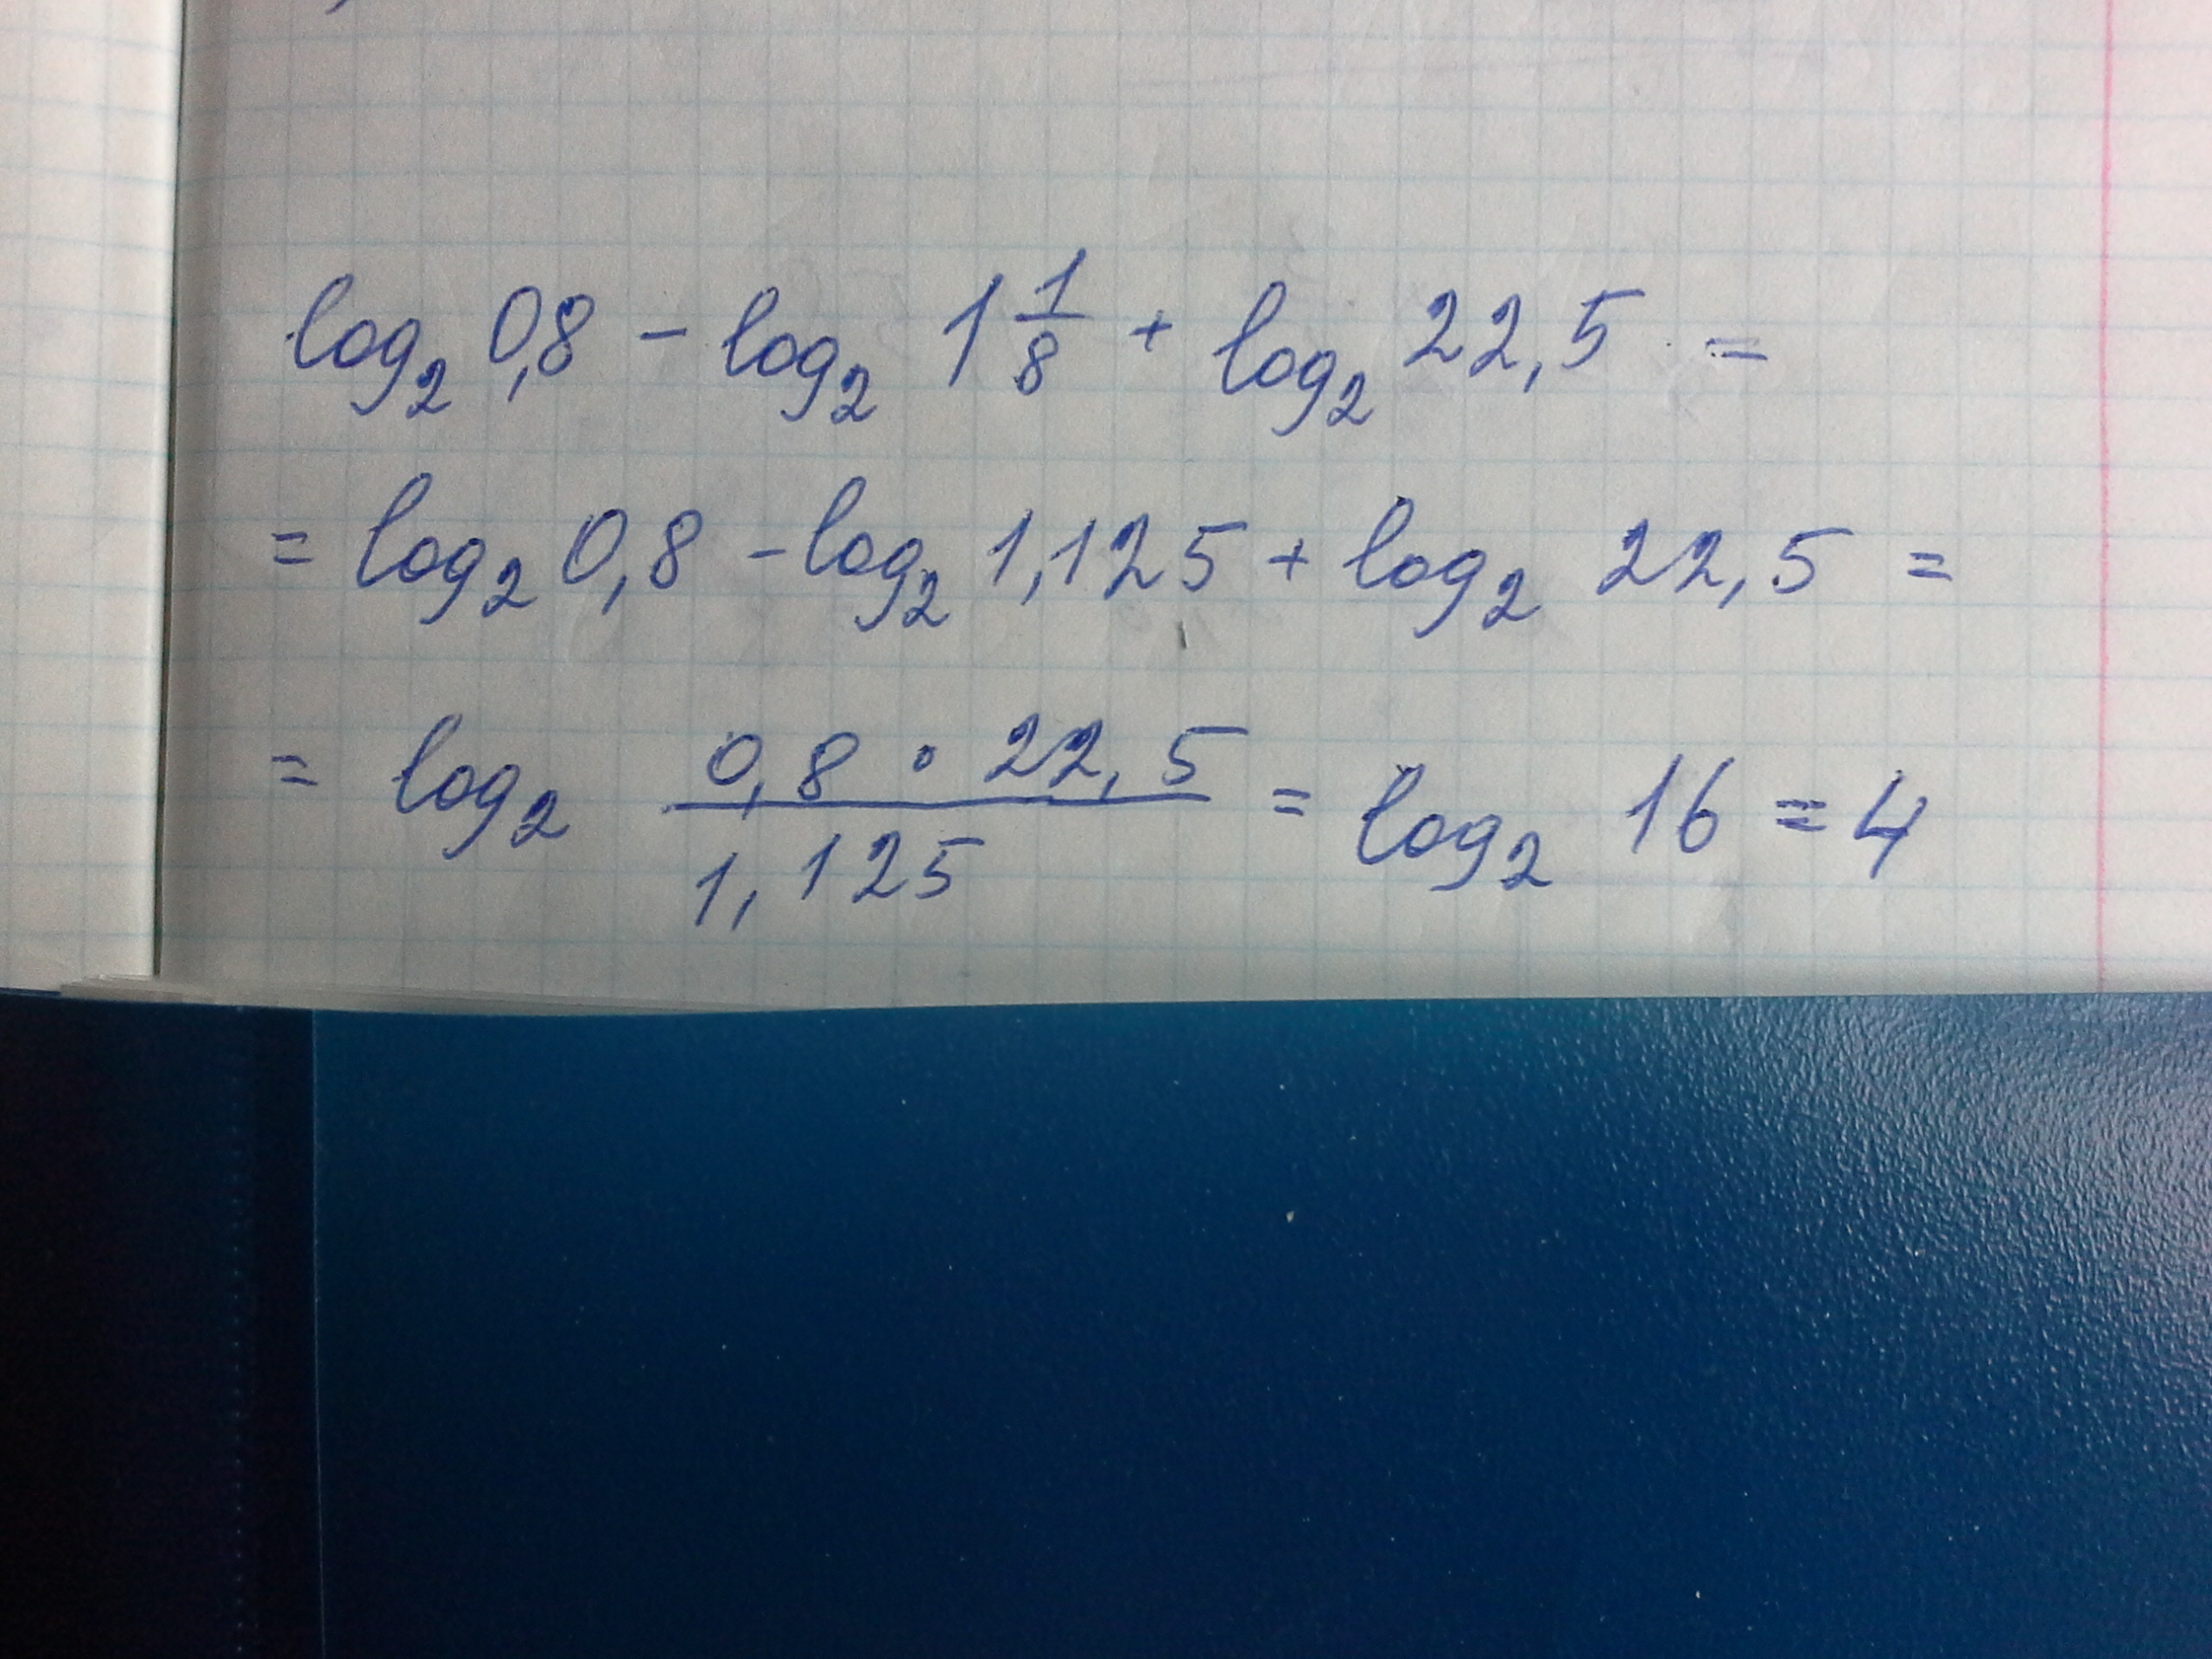 log₂ 0,8 - log₂ 1 1/8 + log₂ 22,5 =
= log₂ 0,8 - log₂ 1,125 + log₂ 22,5 =
= log₂ (0,8 · 22,5)/(1,125) = log₂ 16 = 4